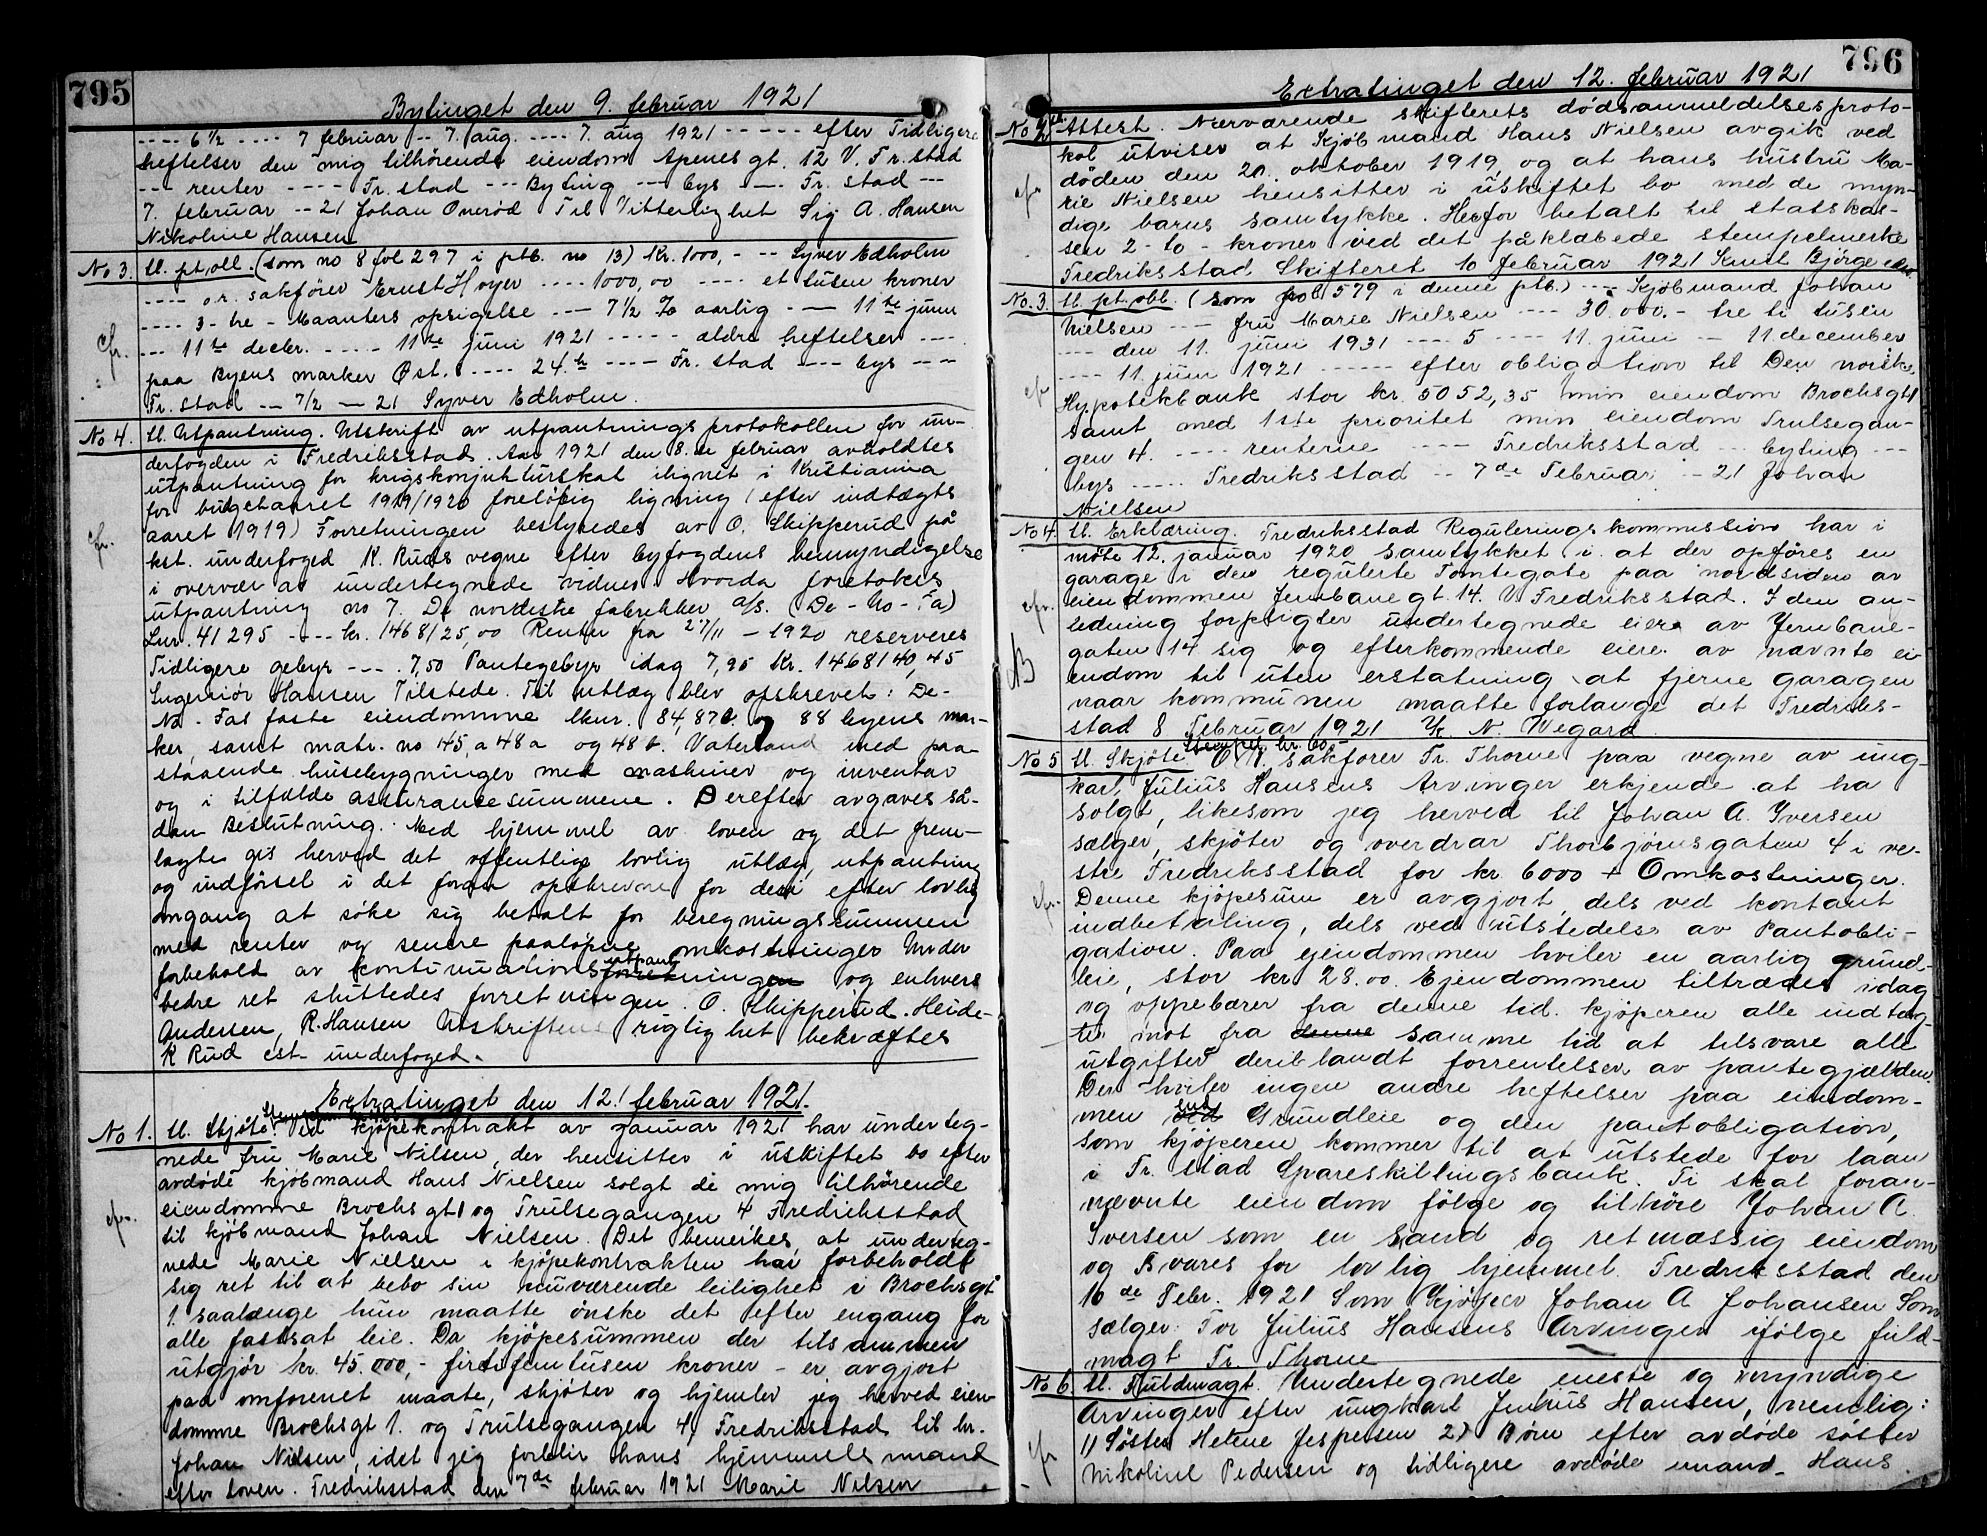 795
Bytinget den 9. februar 1921
---- 6½ ---- 7 februar -- 7. aug. ---- 7. aug 1921 ----- efter Tidligere
heftelser den mig tilhörende eiendom Apenesgt. 12 V. Fr.stad
--- renter ---- Fr.stad --- Byting --- bys --- Fr. stad ---
7. februar -- 21 Johan Onerød Til Vitterlighet Sig A. Hansen
Nikoline Hansen
No 3. U. pt. obl. (som no 8 fol 297 i ptb. no 13) Kr. 1000, - -- Syver Edholm
---- o.r. sakfører Ernst Høyer ---- 1000,00 ---- et tusen kroner
---- 3- tre - Maanters opsigelse --- 7½ % aarlig --- 11te juni
--- 11te decbr. ---- 11te juni 1921 ----- ældre heftelser ----
cfr. paa Byens marker Øst. ---- 24.b ---- Fr. stad --- bys ---
Fr. stad -- 7/2 -- 21 Syver Edholm.
No 4. U. Utpantning. Utskrift av utpantningsprotokollen for un-
derfogden i Fredriksstad. Aar 1921 den 8. de februar avholdtes
utpantning for krigskonjunkturskat ilignet i Kristiania
for budgetaaret 1919/1920 foreløbig ligning (efter indtægts
cfr. aaret 1919) Forretningen bestyredes av O. Skipperud på
kst. underfoged K. Ruds vegne efter byfogdens bemyndigelse
i overvær av undertegnede vidner. Hvorda foretokes
utpantning no 7. De nordiske fabrikker a/s. (De-No-Fa)
Lnr. 41295 ---- kr. 1468125,00 Renter fra 27/11 - 1920 reserveres
Tidligere gebyr --- .7,50 Pantegebyr idag 7,95 Kr. 1468140,45
Ingeniör Hansen Tilstede. Til utlæg blev opskrevet: De-
No-Fas faste eiendomme lknr. 84, 87b. og 88 byens mar-
ker, samt matr. no 45, a 48a og 48b. Vaterland med paa-
staaende husebygninger med maskiner og inventar
og i tilfælde assurancesummene. Derefter avgaves så-
dan Beslutning. Med hjemmel av loven og det frem-
lagte gis herved det offentlige lovlig utlæg, utpantning
og indførsel i det foran opskrevne for deri efter lovlig
omgang at søke sig betalt for beregningssummen
med renter og senere paaløpne omkostninger Under
forbehold av kontinuations utpant forretningen og enhvers
bedre ret sluttedes forretningen. O. Skipperud. Heide-
Andersen, R. Hansen Utskriftens rigtighet bekræftes
K Rud cst. underfoged.
Extratinget den 12. februar 1921.
No 1. U. Skjöte. Ved kjöpekontrakt av januar 1921 har underteg-
nede fru Marie Nilsen, der hensitter i uskiftet bo efter
avdöde kjöbmand Hans Nielsen solgt de mig tilhörende
cfr. eiendomme Brochsgt 1 og Trulsegangen 4 Fredriksstad
til kjöbmand Johan Nielsen. Det bemerkes, at underteg-
nede Marie Nielsen i kjöpekontrakten har forbeholdt
sig ret til at bebo sin nuværende leilighet i Brochsgt
1. saalænge hun maatte önske det efter engang for
alle fastsat leie. Da kjöpesummen der tilsammen
utgjör kr. 45.000,- firtifemtusen kroner - er avgjort
paa omforenet maate, skjöter og hjemler jeg herved eien-
domme Brochsgt 1. og Trulsegangen 4, Fredriksstad til hr.
Johan Nielsen, idet jeg forblir hans hjemmelsmand
efter Loven. Fredriksstad den 7de februar 1921 Marie Nelsen
796
Extratinget den 12. februar 1921
No 2 Attest. Nærværende skifterets dödsanmeldelsesproto-
kol utviser at Kjöbmand Hans Nielsen avgik ved
cfr döden den 20. oktober 1919 og at hans hustru Ma-
rie Nielsen hensitter i uskiftet bo med de myn-
dige barns samtykke. Herfor betalt til statskas-
sen 2-to-kroner ved det påklæbede stempelmerke
Fredriksstad Skifteret 10 februar 1921 Knut Bjørge
No. 3. U. pt. obl. (som fol 579 i denne ptb.) ---- Kjöbmand Johan
Nielsen --- fru Marie Nielsen ---- 30.000.- tre ti tusen
---- den 11. juni 1931 ---- 5 ---- 11. juni --- 11 december
---- 11 juni 1921 ----- efter obligation til Den norske
cfr Hypotekbank stor kr. 5052,35 min eiendom Brochsgt 1
samt med 1ste prioritet min eiendom Trulsegan-
gen 4. ---- renterne ---- Fredriksstad --- byting ---
bys ----- Fredriksstad -- 7de Februar -- 21 Johan
Nielsen
No 4. U. Erklæring. Fredriksstad Reguleringskommission har i
möte 12. januar 1920 samtykket i at der opföres en
garage i den regulerte Tomtegate paa nordsiden av
cfr. eiendommen Jernbanegt. 14. V Fredriksstad. I den an-
ledning forpligter undertegnede eier av Jernbane-
gaten 14 sig og efterkommende eiere av nævnte ei-
endom til uten erstatning at fjerne garagen
naar kommunen maatte forlange det Fredriks-
stad 8 Februar 1921 N. Wegard
No 5 U. Skjöte Stempel kr. 60,- O.r. sakförer Fr. Thorne paa vegne av ung-
kar Julius Hansens Arvinger erkjende at ha
solgt, likesom jeg herved til Johan A. Iversen
sælger, skjöter og overdrar Thorbjörnsgaten 4 i ve-
stre Fredriksstad for kr 6000 + Omkostninger.
cfr. Denne kjöpesum er avgjort, dels ved kontant
indbetaling, dels ved utstedelse av Pantobli-
gation. Paa ejendommen hviler en aarlig grund-
leie, stor kr 28.00. Ejendommen tiltrædes idag
og oppebærer fra denne tid kjöperen alle indtæg-
ter mot fra denne samme tid at tilsvare alle
utgifter deriblandt forrentelse av pantegjælden.
Der hviler ingen andre heftelser paa eiendom-
men end Grundleie og den pantobligation,
som kjöperen kommer til at utstede for laan
i Fr. stad Spareskillingsbank. Ti skal foran-
nævnte eiendom fölge og tilhöre Johan A.
Iversen som en sand og retmæssig eiendom
og svares for lovlig hjemmel. Fredriksstad den
10de Febr. 1921 Som Kjöper Johan A Johansen Som
sælger. For Julius Hansens Arvinger ifölge fuld-
magt Fr. Thorne
No 6 U. Fuldmagt. Undertegnede eneste og myndige
Arvinger efter ungkarl Julius Hansen, nemlig:
1) Söster Helene Jespersen 2) Börn efter avdöde söster
cfr Nikoline Pedersen og tidligere avdöde mand Hans